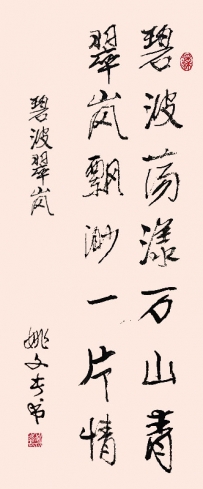 碧波荡漾万山青
翠岚飘渺一片情
碧波翠岚
姚文奎书